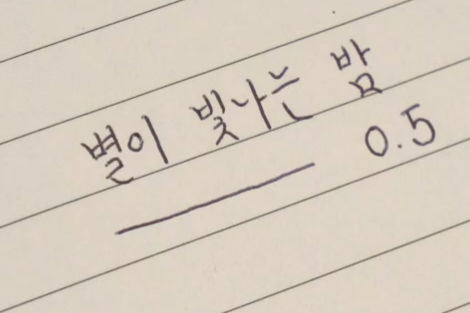 별이 빛나는 밤
0.5